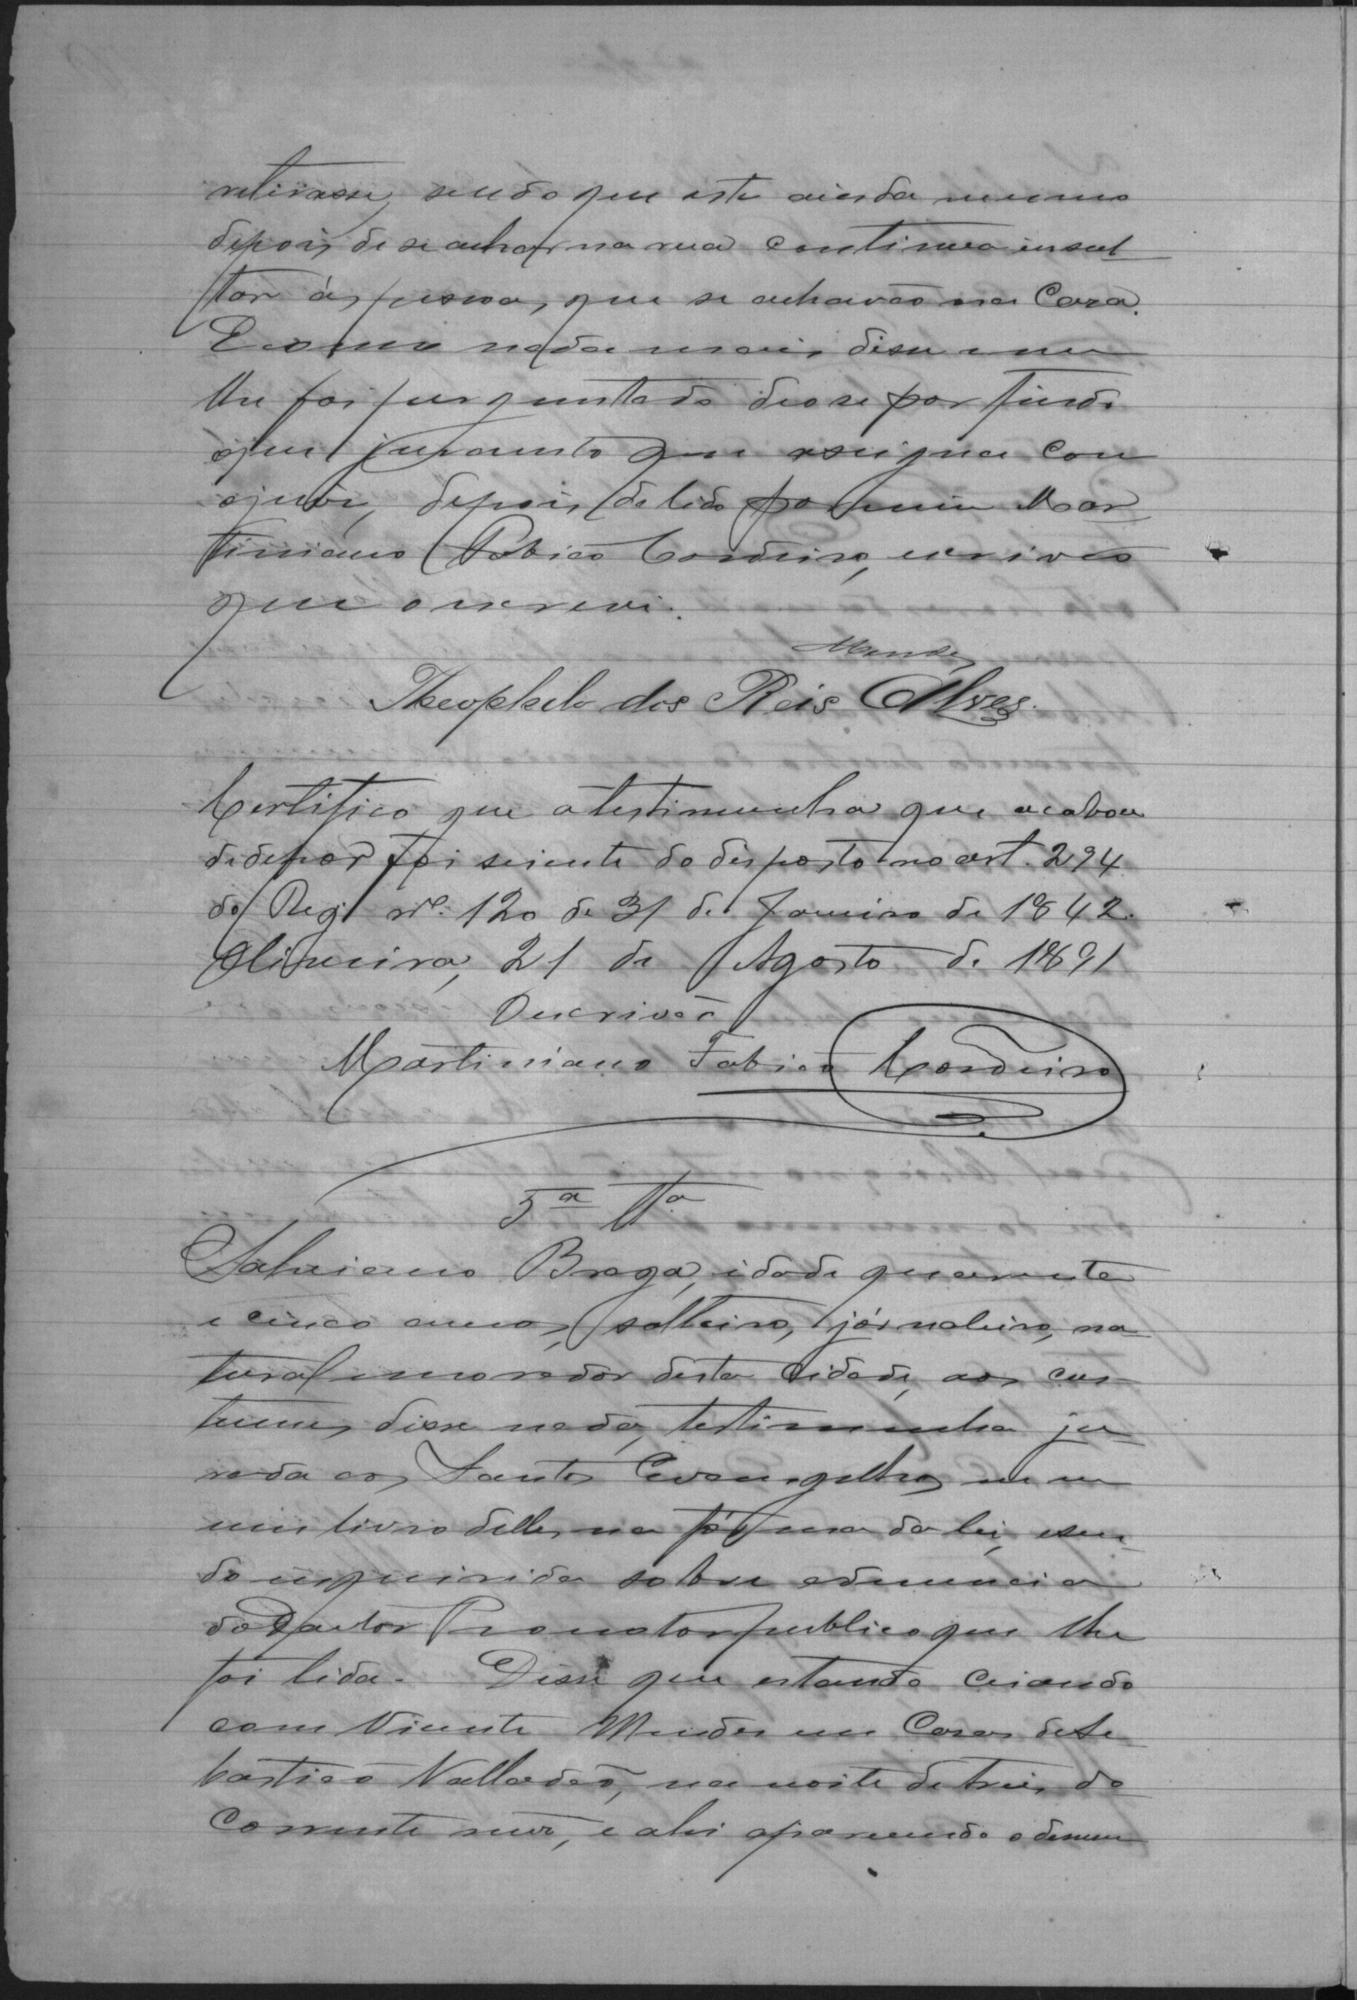 retirasse, sendo que este ainda mesmo
depois de se achar na rua continuou insul
tar ás pessoas, que se achavão na Caza.
E como nada mais disse e nem
lhe foi perguntado deo se por findo
que juramento que assigna com
o juiz, depois de lido por mim Mar
tiniano Fabião Cordeiro, escrivão
que o escrevi.
Mendes
Theophilo dos Reis Alves.
Certifico que a testimunha que acabou
de depor foi sciente do disposto no art. 294
do Reg. nº. 120 de 31 de Janeiro de 1842.
Oliveira, 21 de Agosto de 1891
O escrivão
Martiniano Fabião Cordeiro
5ª Tta
Braga, idade quarenta
e cinco annos, solteiro, jornaleiro, na
tural morador desta Cidade, aos cos
tumes disse nada, testimunha ju
rada aos Santos Evangelhos em
um livro delles na forma da lei, e sen
do inquirida sobre a denuncia
do Doutor Promotor publico que lhe
foi lida. Disse que estando ceiando
com Vicente Mendes em Casa de Se
bastião Valladão, na noite de tres do
Corrente mez, e ahi aparecendo o denun